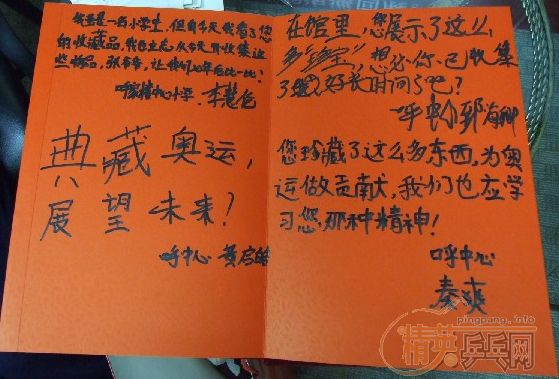 我是一名小学生,但自今天我看了您
的收藏品,我也立志从今天开始收集这
些物品,张爷爷,让我们20年后比一比?
呼家楼中心小学 李慧
典藏奥运,
展望未来?
呼中心 黄启
在馆里,您展示了这么
多“多宝”,想必你已收集
了好长时间了吧?
呼中心郭海
您珍藏了这么多东西,为奥
运做贡献,我们也应学
习您那种精神!
呼中心
秦爽
pingpang.info
精英乒乓网